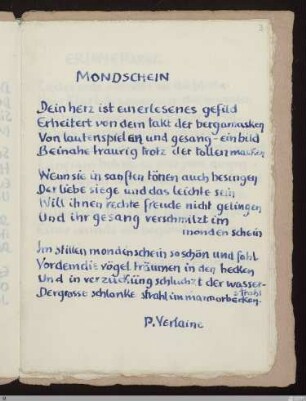 MONDSCHEIN
Dein herz ist ein erlesenes gefild
Erheitert von dem takt der bergamasken
Von lautenspielen und gesang - ein bild
Beinahe traurig trotz der tollen masken.
Wenn sie in sanften tönen auch besingen
Der liebe siege und das leichte sein
Will ihnen rechte freude nicht gelingen
Und ihr gesang verschmilzt im
monden schein
Im stillen mondenschein so schön und fahl
Vor dem die vögel träumen in den hecken
Und in verzückung schluchzt der wasser-
strahl
Der grosse schlanke strahl im marmorbecken.
P. Verlaine